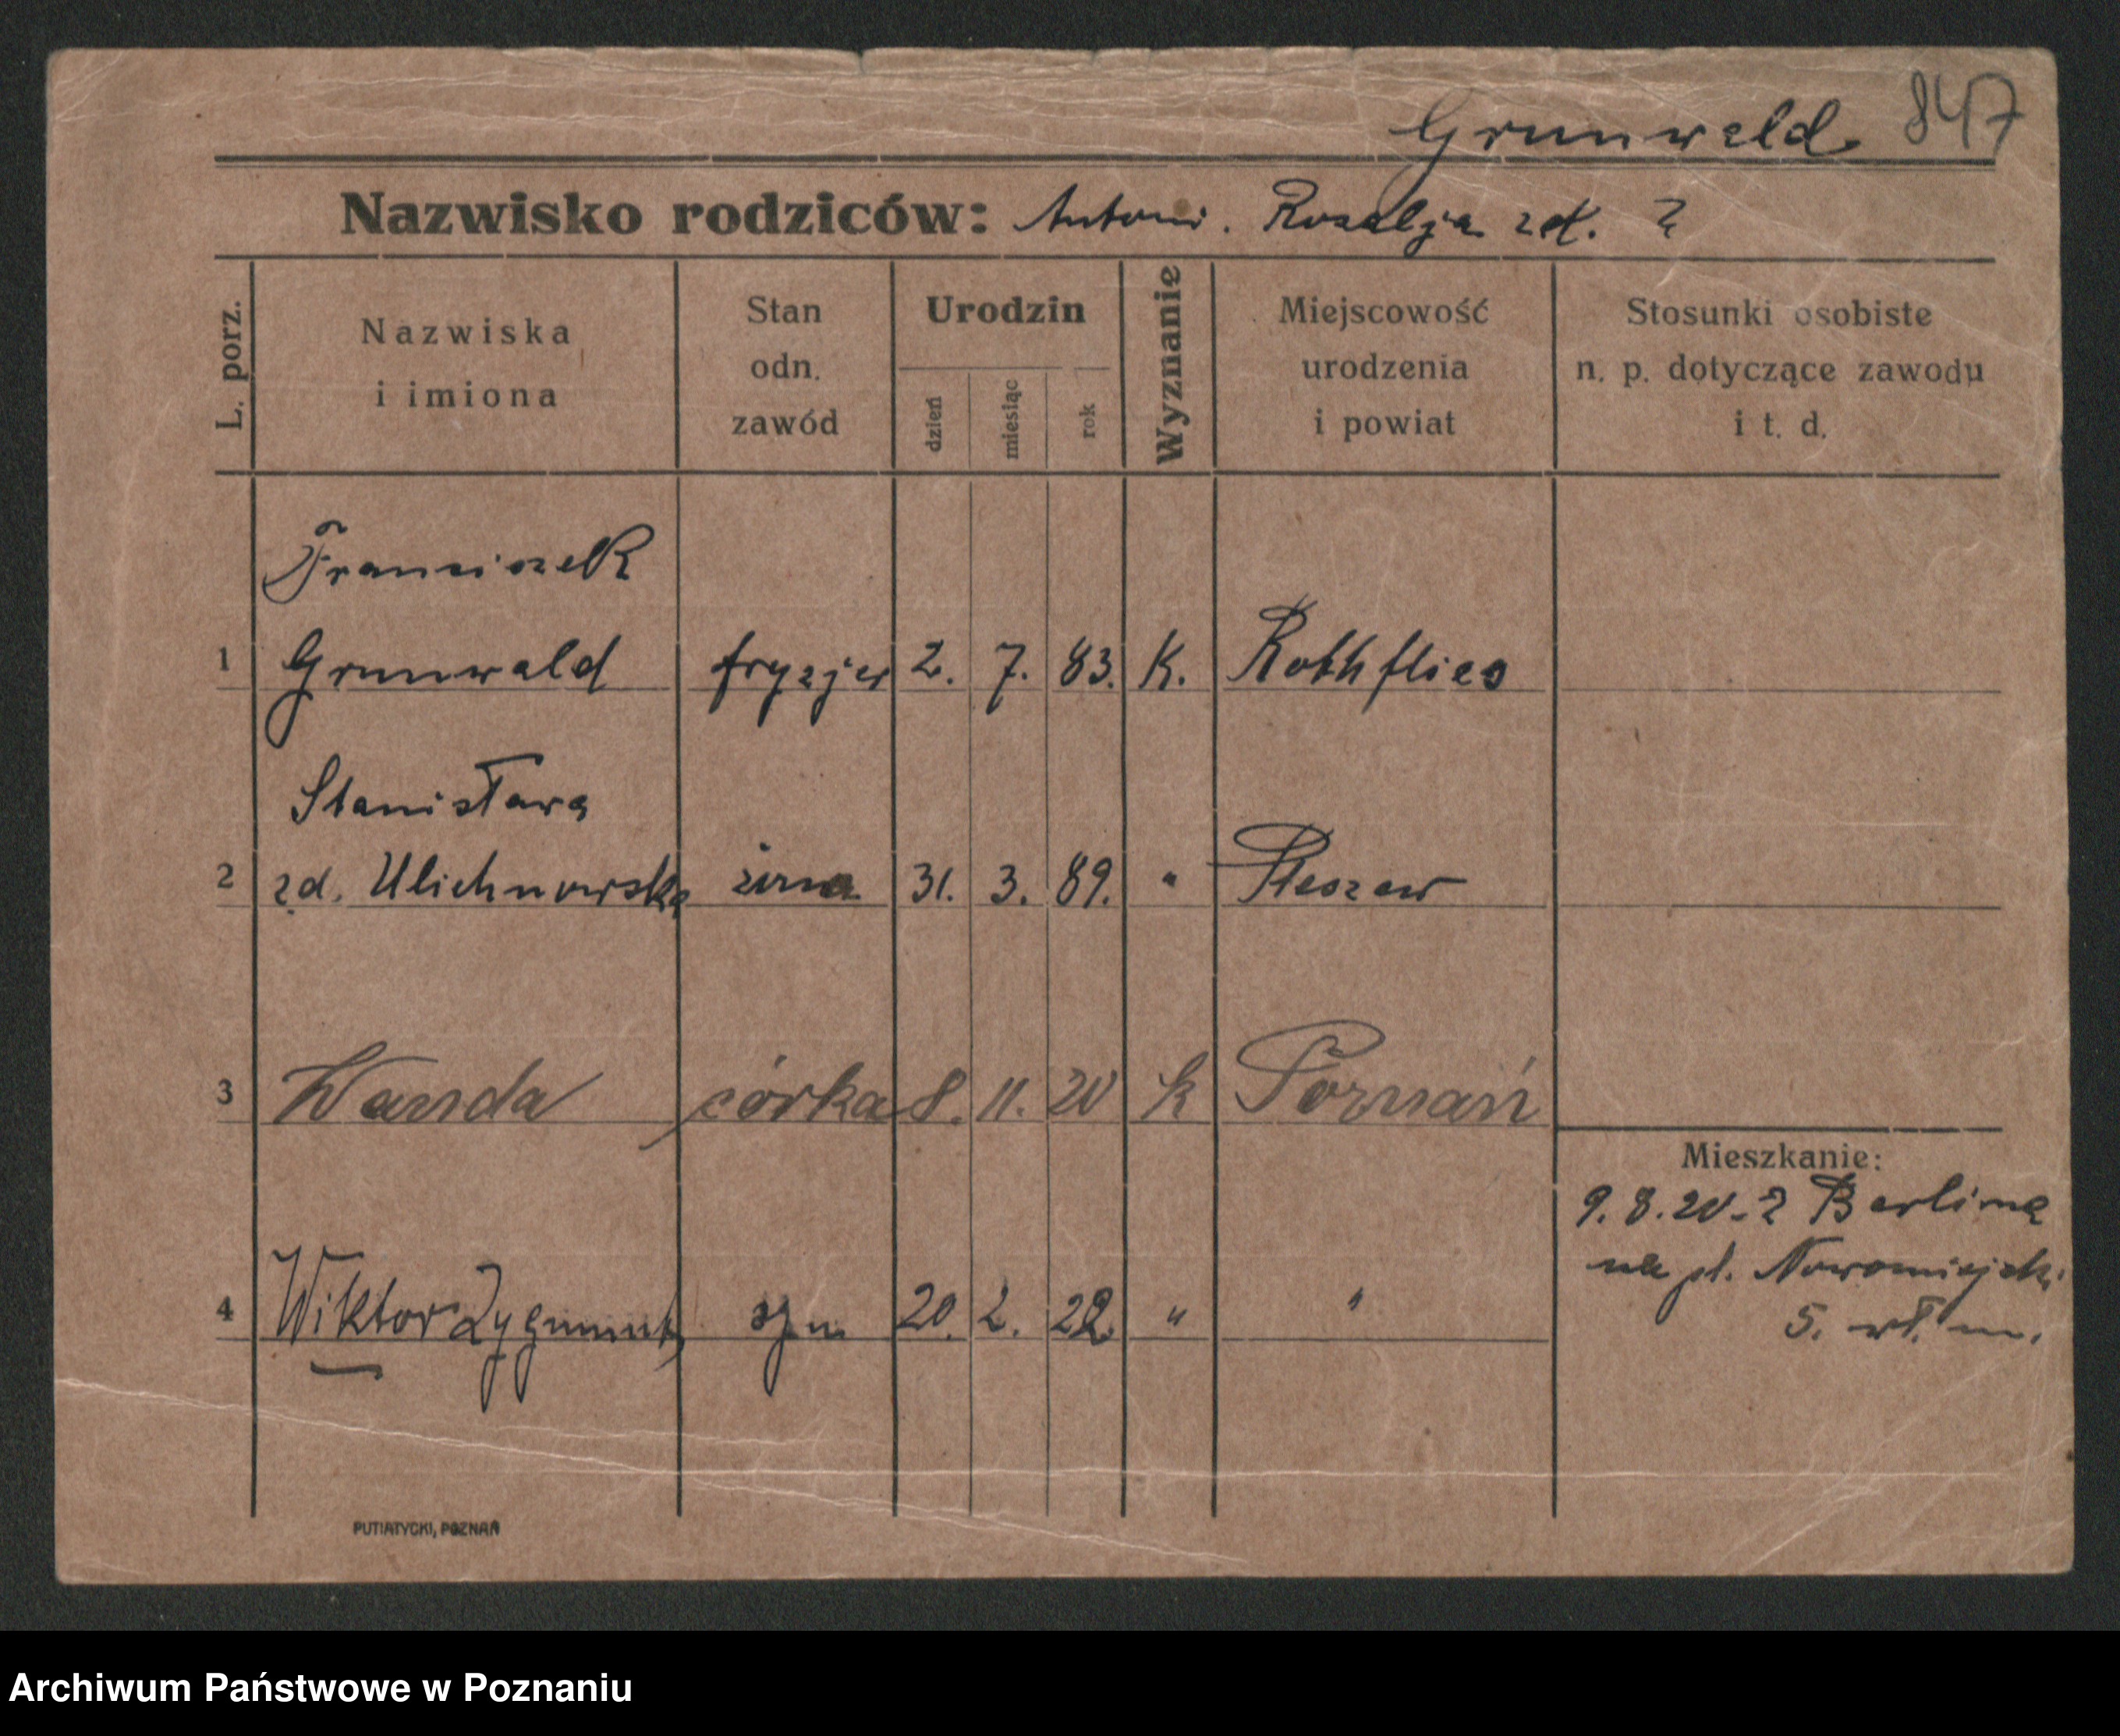 Grunwald 847
Nazwisko rodziców: Antoni. Rozalja zd. ?
L. porz.
Nazwiska
i imiona
Stan
odn.
zawód
Urodzin
dzień
miesiąc
rok
Wyznanie
Miejscowość
urodzenia
i powiat
Stosunki osobiste
n. p. dotyczące zawodu
i t. d.
Franciszek
1 Grunwald fryzjer 2. 7. 83. K. Rothflies
Stanisława
2 zd. Ulichnowska żona 31. 3. 89. " Pleszew
3 Wanda córka 8. 11. 20 k Poznań
Mieszkanie:
9. 8. 20 - z Berlina
na pl. Nowomiejski
5. wł. m.
4 Wiktor Zygmunt syn 20. 2. 22. " "
PUTIATYCKI, POZNAŃ
Archiwum Państwowe w Poznaniu